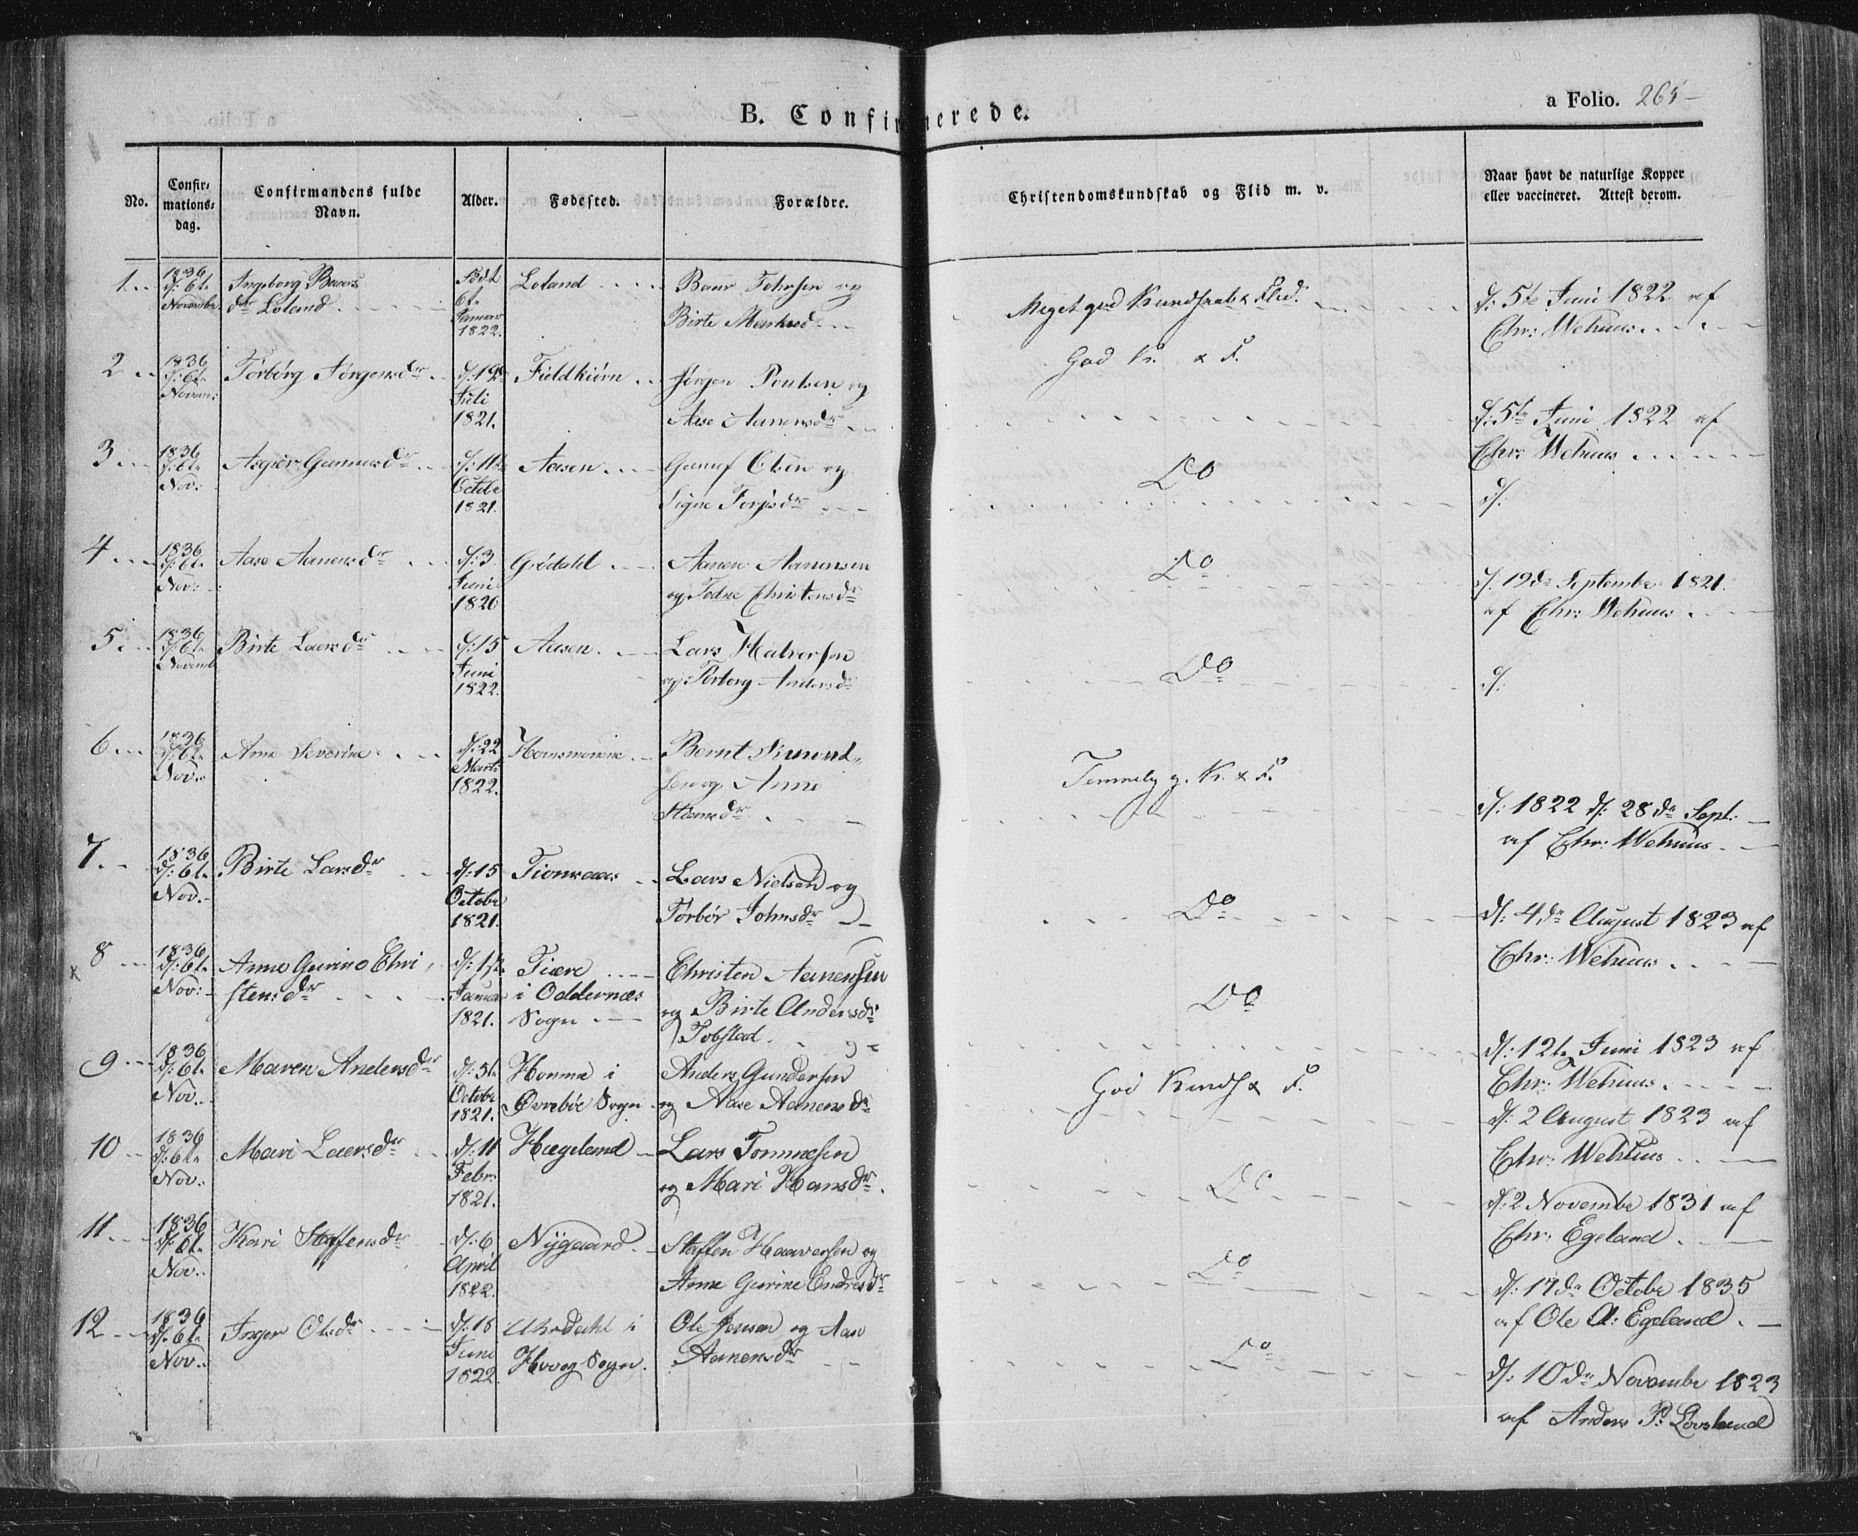 B. Confirmerede.
a Folio. 265
No.
Confirmationsdag.
Confirmandens fulde Navn.
Alder.
Fødested.
Forældre.
Christendomskundskab og Flid m. v.
Naar havt de naturlige Kopper eller vaccineret. Attest derom.
1 1836 d: 6te Novembr Ingeborg Baars dr Loland Født 6te Januar 1822. Loland Baar Tohrsen og Birte Markusd: Meget god Kundskab & Flid. d: 5te Juni 1822 af Chr: Wehuus
2 1836 d: 6te Novem: Torborg Jørgensdr d: 19de Juli 1821. Fieldkiørn Jørgen Poulsen og Aase Aanensdr God K. & F. d: 5te Juni 1822 af Chr: Wehuus
3 1836 d: 6te Nov: Asgier Gunnersdr d: 11te Octbr 1821. Aasen Gunuf Olsen og Signe Terjisdr Do d:
4 1836 d: 6te Nov: Aase Aanensdr d: 3 Juni 1820 Grødahl Aanen Aanensen og Todne Christensdr Do d: 19de Septembr 1821. af Chr: Wehuus
5 1836 d: 6te Novemb Birte Laersdr d: 15 Juni 1822. Aasen Lars Halversen og Torborg Andersdr Do d:
6 1836 d: 6te Nov: Ane Severine d: 22 Marts 1822. Homsmoene Bernt Simondsen og Anne Hansdr Temmelig g. K. & F. d: 1822 d: 28de Sept: af Chr: Wehuus
7 1836 d: 6te Nov. Birte Larsdr d: 15 Octobr 1821. Tionsaas Lars Nielsen og Torbor Johnsdr Do d: 4de August 1823 af Chr: Wehuus
8 1836 d: 6te Nov: Anne Gurine Christensdr d: 1ste Januar 1821. Tiære i Oddernæs Sogn Christen Aanensen og Birte Andersdr Tobstad. Do d: 12te Juni 1823 af Chr: Wehuus
9 1836 d: 6te Nov. Maren Andersdr d: 5te Octobr 1821. Homme i Øvrebøe Sogn Anders Gundersen og Aase Aanensdr God Kundsk & F. d: 2 August 1823 af Chr: Wehuus
10 1836 d: 6te Nov. Mari Laersdr d: 11 Febr: 1821. Hægeland Lars Tommesen og Mari Hansdr Do d: 2 Novembr 1831 af Chr: Egeland
11 1836 d: 6te Nov. Kari Staffensdr d: 6 April 1822. Nygaard Staffen Haaversen og Anne Gurine Endresdr Do d: 17de Octobr 1835 af Ole A: Egeland
12 1836 d: 6te Nov. Inger Olsdr d: 18 Juni 1822. Uhrdahl i Hovog Sogn. Ole Jensen og Aase Aanensdr Do d: 10de Novembr 1823 af Anders P: Lovsland